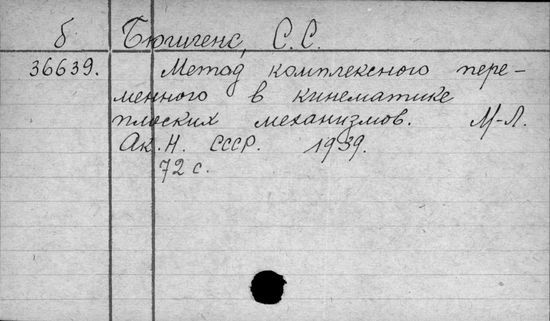 б Бюшгенс, С.С.
36639. Метод комплексного пере-
менного в кинематике
плоских механизмов. М-Л.
Ак.Н. СССР. 1939.
72 с.